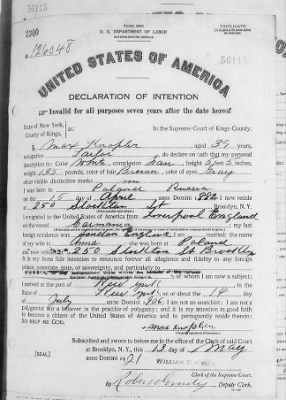 36115
TRIPLICATE
1240
U. S. DEPARTMENT OF LABOR
NATURALIZATION SERVICE
No. 126048
36115
UNITED STATES OF AMERICA
DECLARATION OF INTENTION
Invalid for all purposes seven years after the date hereof
State of New York,
County of Kings,
In the Supreme Court of Kings County.
I, Max aged 39 years,
occupation Tailor, do declare on oath that my personal
description is: Color White, complexion Fair, height 5 feet 5 inches,
weight 185 pounds, color of hair Brown, color of eyes Gray
other visible distinctive marks
I was born in Poland Russia
on the 15 day of April, anno Domini 1882; I now reside at
250 Stockton St Brooklyn, N.Y.
I emigrated to the United States of America from Liverpool England
on the vessel Carmania; my last
foreign residence was London England; I am married; the name
of my wife is Anna; she was born at Poland
and now resides at 250 Stockton St Brooklyn
It is my bona fide intention to renounce forever all allegiance and fidelity to any foreign
prince, potentate, state, or sovereignty, and particularly to
of whom I am now a subject;
I arrived at the port of New York, in the
State of New York, on or about the 14 day
of July, anno Domini 1906; I am not an anarchist; I am not a
polygamist nor a believer in the practice of polygamy; and it is my intention in good faith
to become a citizen of the United States of America and to permanently reside therein:
SO HELP ME GOD.
Subscribed and sworn to before me in the office of the Clerk of said Court
at Brooklyn, N.Y., this 13 day of May
anno Domini 1921
[SEAL]
Clerk of the Supreme Court.
By Deputy Clerk.